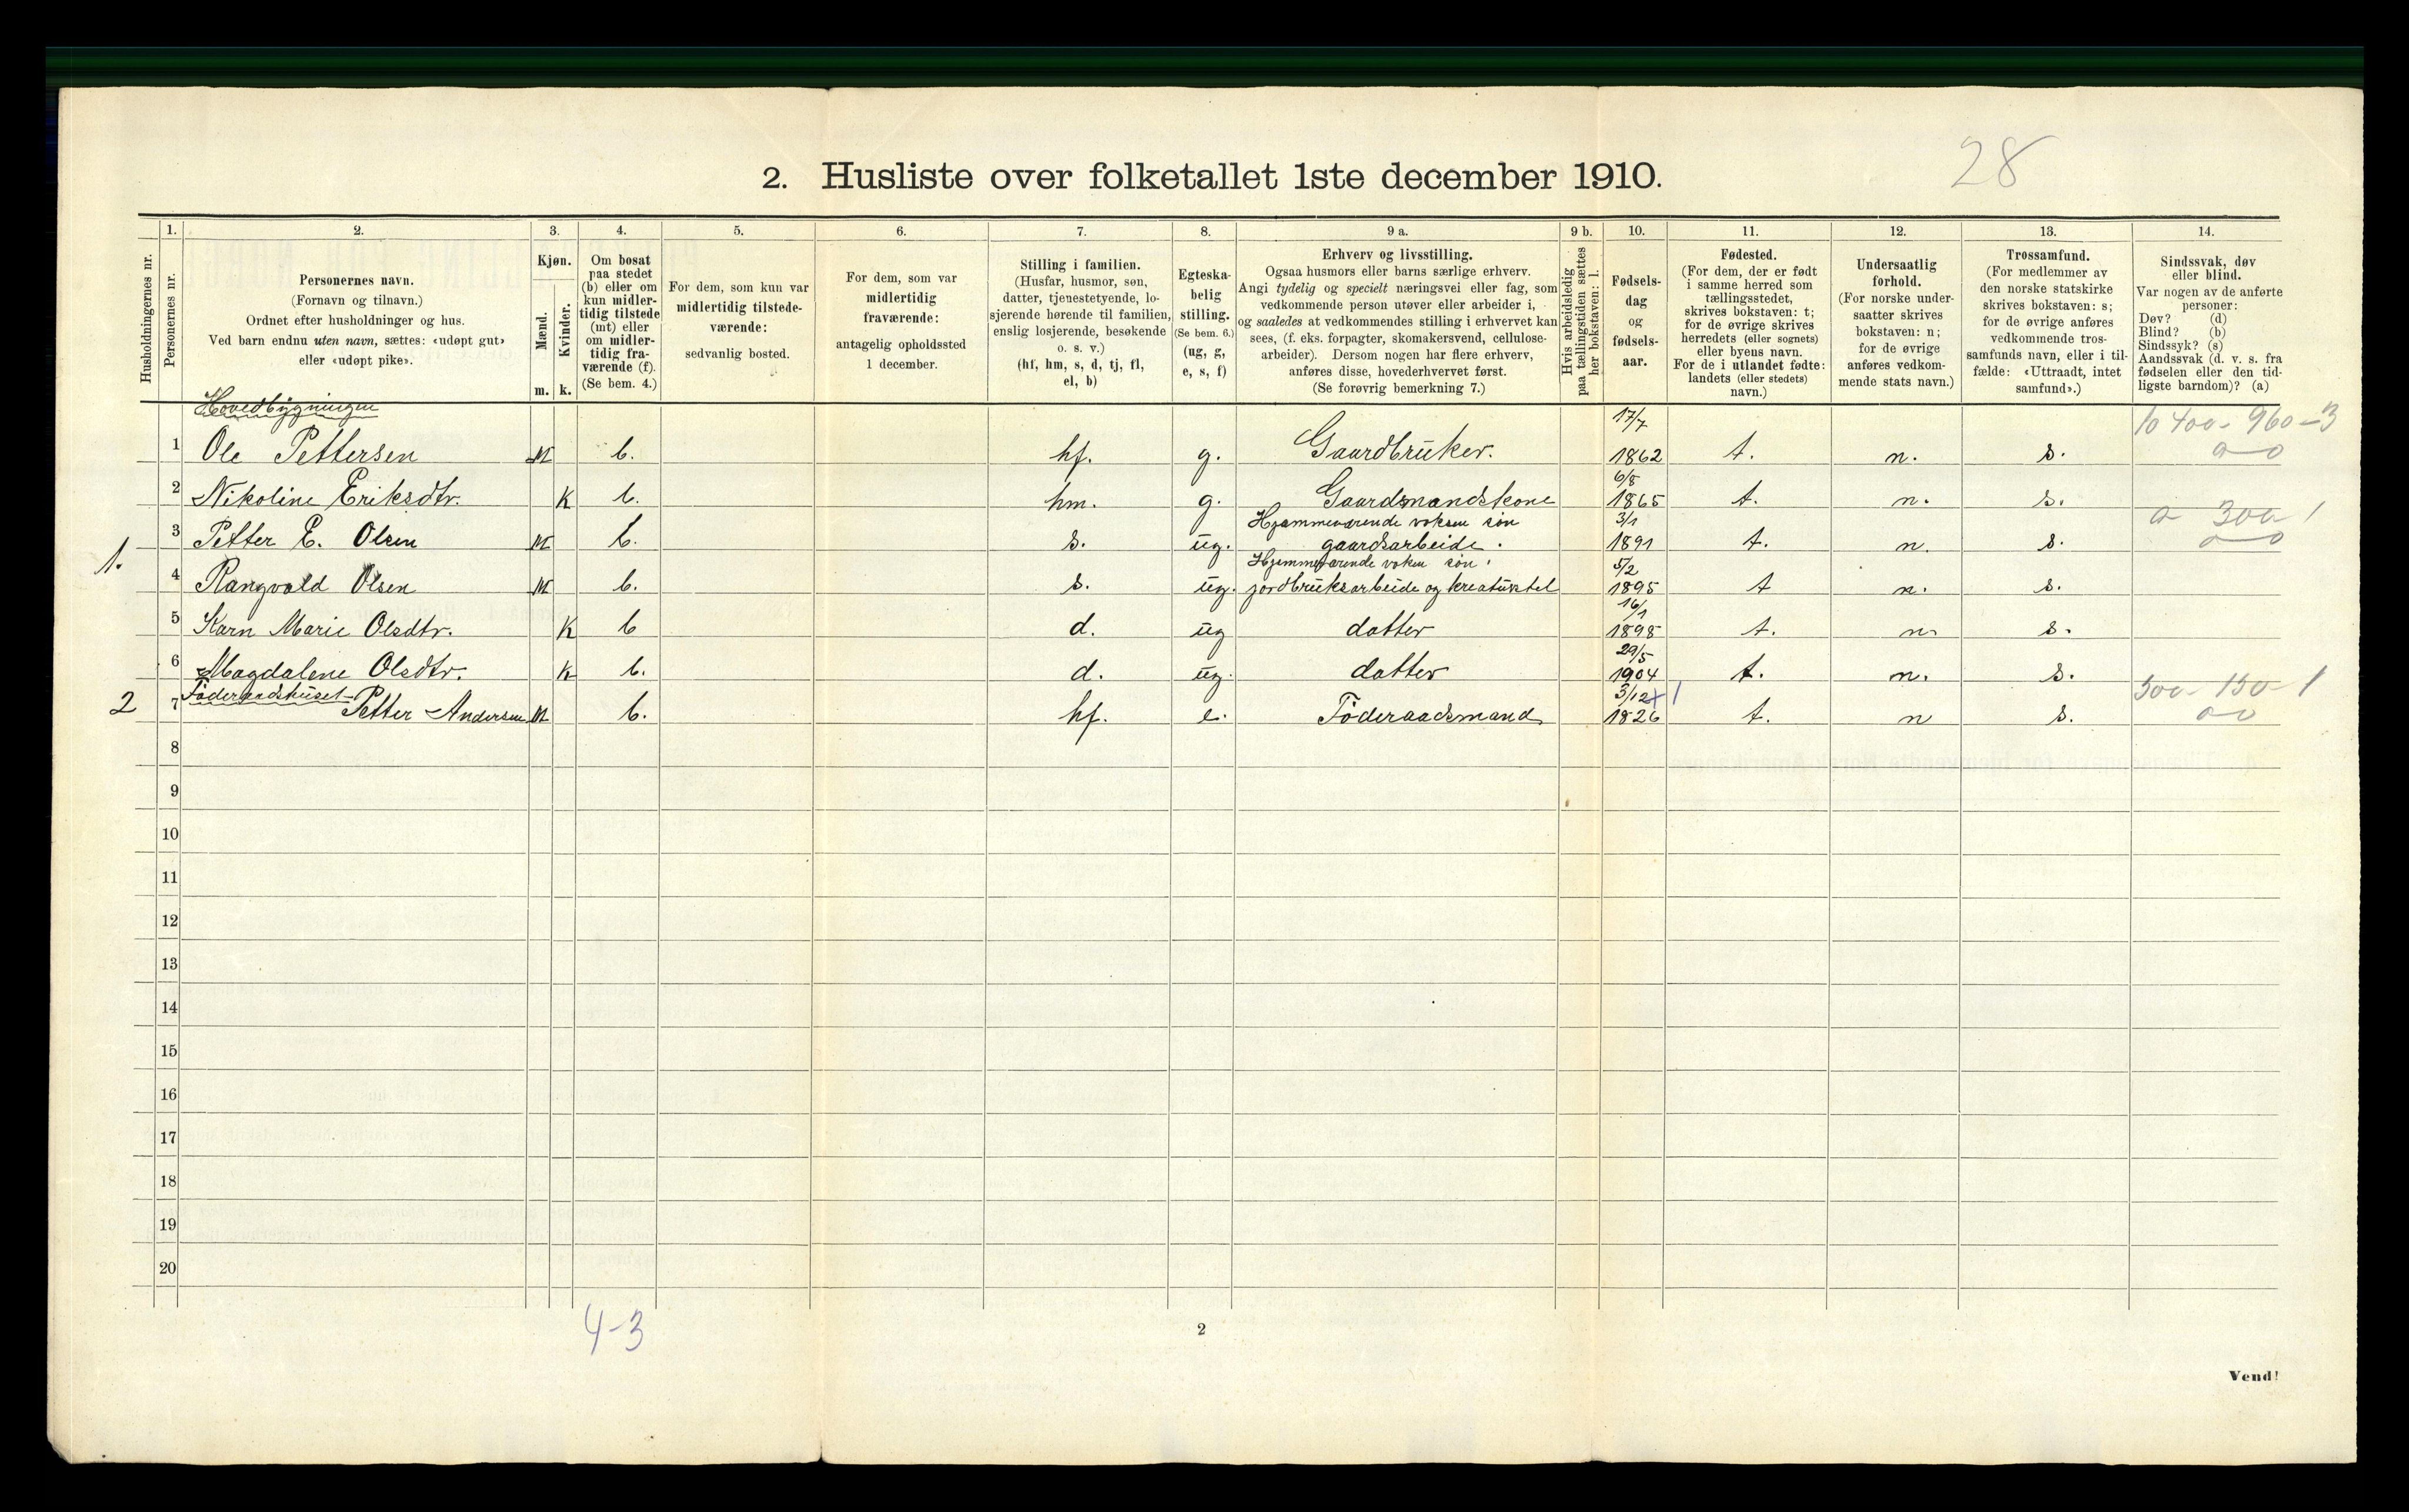 28
2. Husliste over folketallet 1ste december 1910.
1. 2. 3. 4. 5. 6. 7. 8. 9 a. 9 b. 10. 11. 12. 13. 14.
Husholdningernes nr.
Personernes nr.
Personernes navn.
(Fornavn og tilnavn.)
Ordnet efter husholdninger og hus.
Ved barn endnu uten navn, sættes: «udøpt gut»
eller «udøpt pike».
Kjøn.
Mænd.
m.
Kvinder.
k.
Om bosat
paa stedet
(b) eller om
kun midler-
tidig tilstede
(mt) eller
om midler-
tidig fra-
værende (f).
(Se bem. 4.)
For dem, som kun var
midlertidig tilstede-
værende:
sedvanlig bosted.
For dem, som var
midlertidig
fraværende:
antagelig opholdssted
1 december.
Stilling i familien.
(Husfar, husmor, søn,
datter, tjenestetyende, lo-
sjerende hørende til familien,
enslig losjerende, besøkende
o. s. v.)
(hf, hm, s, d, tj, fl,
el, b)
Egteska-
belig
stilling.
(Se bem. 6.)
(ug, g,
e, s, f)
Erhverv og livsstilling.
Ogsaa husmors eller barns særlige erhverv.
Angi tydelig og specielt næringsvei eller fag, som
vedkommende person utøver eller arbeider i,
og saaledes at vedkommendes stilling i erhvervet kan
sees, (f. eks. forpagter, skomakersvend, cellulose-
arbeider). Dersom nogen har flere erhverv,
anføres disse, hovederhvervet først.
(Se forøvrig bemerkning 7.)
Hvis arbeidsledig
paa tællingstiden sættes
her bokstaven: l.
Fødsels-
dag
og
fødsels-
aar.
Fødested.
(For dem, der er født
i samme herred som
tællingsstedet,
skrives bokstaven: t;
for de øvrige skrives
herredets (eller sognets)
eller byens navn.
For de i utlandet fødte:
landets (eller stedets)
navn.)
Undersaatlig
forhold.
(For norske under-
saatter skrives
bokstaven: n;
for de øvrige
anføres vedkom-
mende stats navn.)
Trossamfund.
(For medlemmer av
den norske statskirke
skrives bokstaven: s;
for de øvrige anføres
vedkommende tros-
samfunds navn, eller i til-
fælde: «Uttraadt, intet
samfund».)
Sindssvak, døv
eller blind.
Var nogen av de anførte
personer:
Døv? (d)
Blind? (b)
Sindssyk? (s)
Aandssvak (d. v. s. fra
fødselen eller den tid-
ligste barndom)? (a)
Hovedbygningen
17/7 10400 - 960 - 3
1 Ole Pettersen M b. hf. g. Gaardbruker. 1862 t. n. s.
6/8
2 Nikoline Eriksdtr. K b. hm. g. Gaardsmandskone 1865 t. n. s.
Hjemmeværende voksen søn 3/1 300 1
3 Petter E. Olsen M b. s. ug. gaardsarbeide. 1891 t. n. s.
1. Hjemmeværende voksen søn. 5/2
4 Rangvald Olsen M b. s. ug. jordbruksarbeide og kreaturstel 1895 t n. s.
16/1
5 Karn Marie Olsdtr. K b d. ug datter 1898 t. n. s.
29/5
6 Magdalene Olsdtr. K b. d. ug. datter 1904 t. n. s.
Föderaadshuset 3/12 + 1 500 - 150 - 1
2 7 Petter Andersen M b. hf. e. Föderaadsmand 1826 t. n s.
8
9
10
11
12
13
14
15
16
17
18
19
20
4-3
2
Vend!